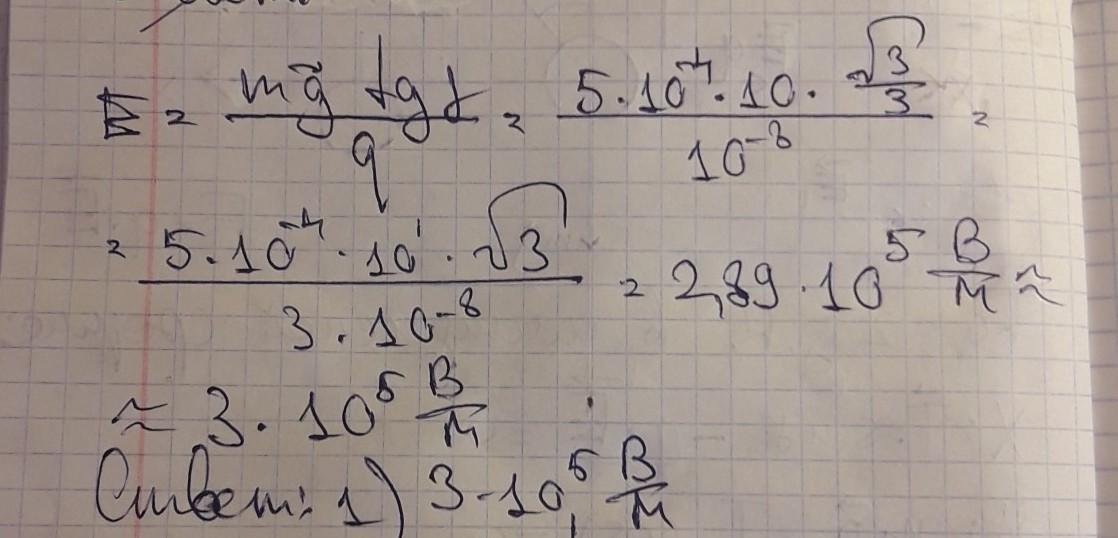 E = mg tg α / q = 5·10⁻⁴·10·√3/3 / 10⁻⁸ =
= 5·10⁻⁴·10¹·√3 / 3·10⁻⁸ = 2,89·10⁵ В/м ≈
≈ 3·10⁵ В/м
Ответ: 1) 3·10⁵ В/м